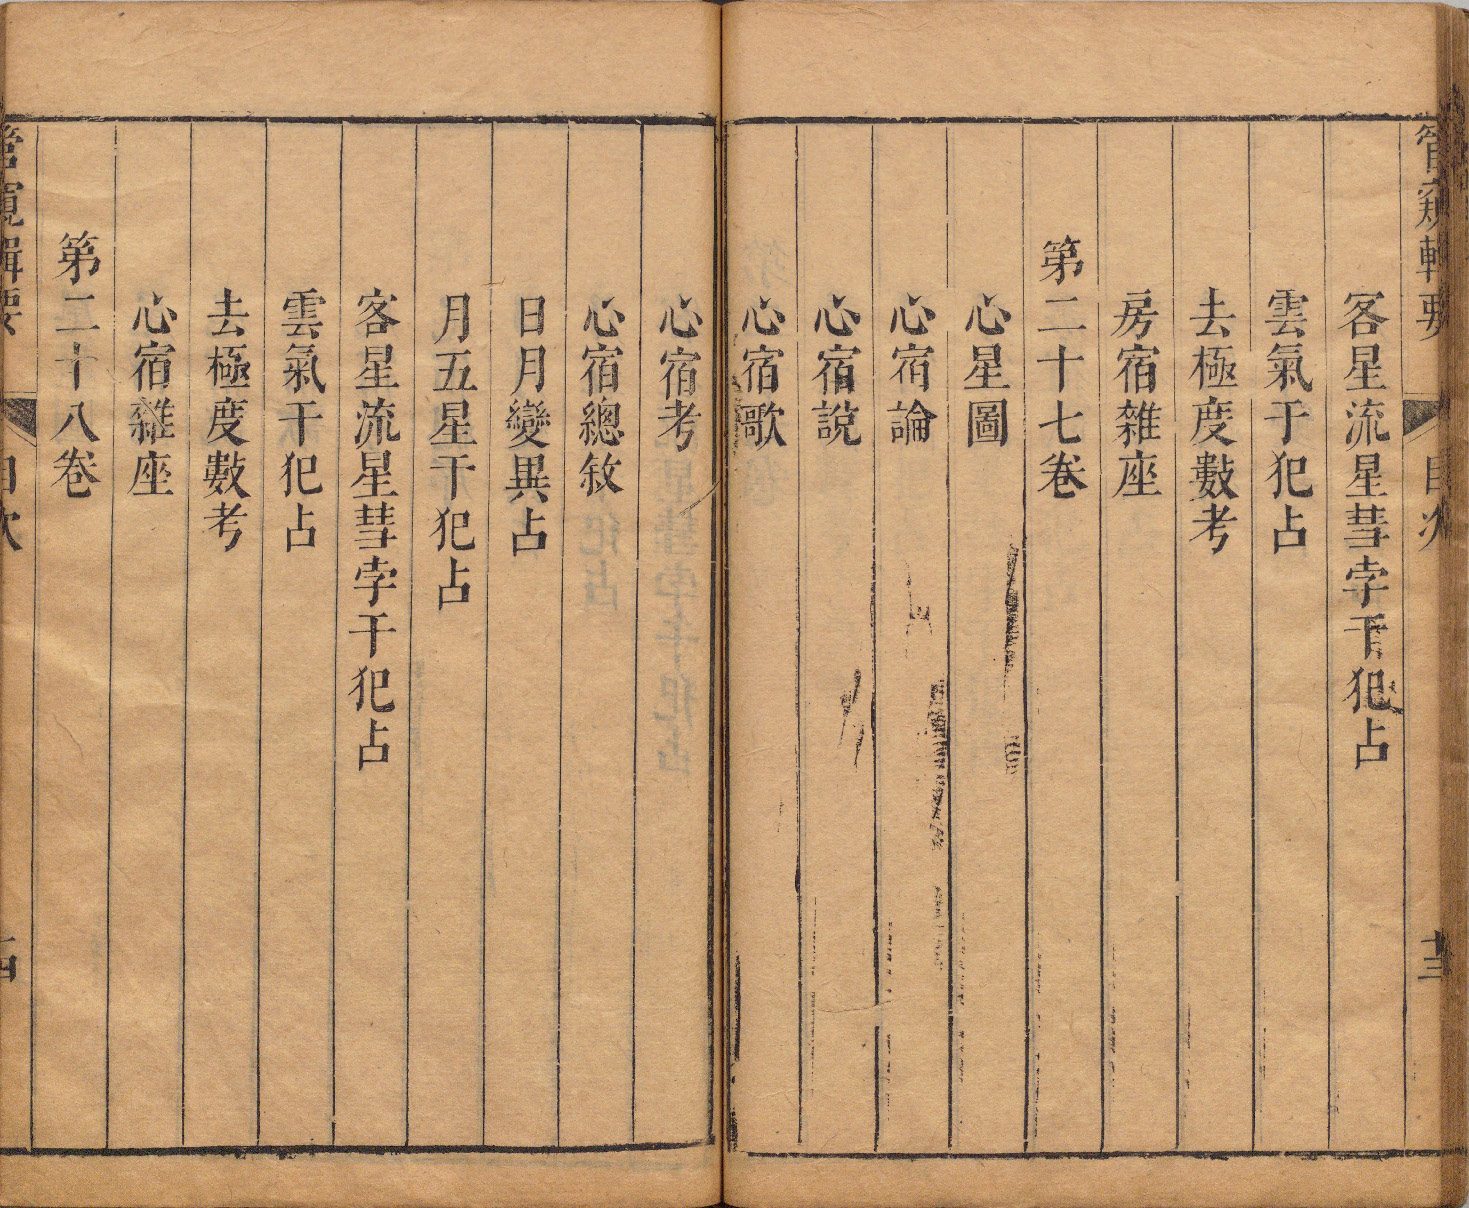 管窺輯要
目次
十三
客星流星彗孛干犯占
雲氣干犯占
去極度數考
房宿雜座
第二十七卷
心星圖
心宿論
心宿說
心宿歌
心宿考
心宿總敘
日月變異占
月五星干犯占
客星流星彗孛干犯占
雲氣干犯占
去極度數考
心宿雜座
第二十八卷
管窺輯要
目次